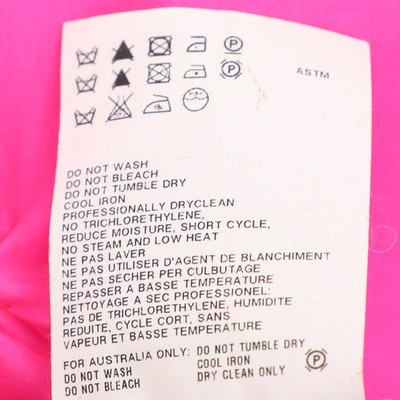 P
P
ASTM
DO NOT WASH
DO NOT BLEACH
DO NOT TUMBLE DRY
COOL IRON
PROFESSIONALLY DRYCLEAN
NO TRICHLORETHYLENE,
REDUCE MOISTURE, SHORT CYCLE,
NO STEAM AND LOW HEAT
NE PAS LAVER
NE PAS UTILISER D'AGENT DE BLANCHIMENT
NE PAS SECHER PAR CULBUTAGE
REPASSER A BASSE TEMPERATURE
NETTOYAGE A SEC PROFESSIONEL:
PAS DE TRICHLORETHYLENE, HUMIDITE
REDUITE, CYCLE CORT, SANS
VAPEUR ET BASSE TEMPERATURE
FOR AUSTRALIA ONLY: DO NOT TUMBLE DRY
DO NOT WASH COOL IRON P
DO NOT BLEACH DRY CLEAN ONLY